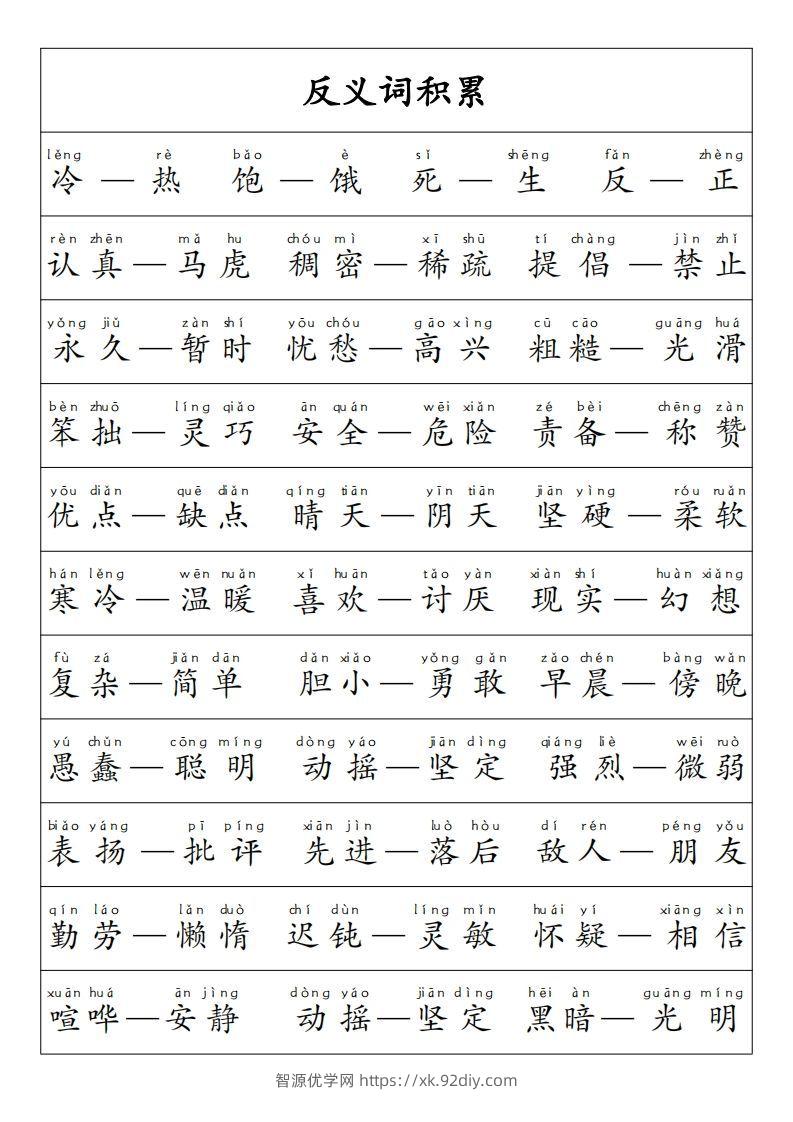 反义词积累
lěng rè bǎo è sǐ shēng fǎn zhèng
冷 — 热 饱 — 饿 死 — 生 反 — 正
rèn zhēn mǎ hu chóu mì xī shū tí chàng jìn zhǐ
认真 — 马虎 稠密 — 稀疏 提倡 — 禁止
yǒng jiǔ zàn shí yōu chóu gāo xìng cū cāo guāng huá
永久 — 暂时 忧愁 — 高兴 粗糙 — 光滑
bèn zhuō líng qiǎo ān quán wēi xiǎn zé bèi chēng zàn
笨拙 — 灵巧 安全 — 危险 责备 — 称赞
yōu diǎn quē diǎn qíng tiān yīn tiān jiān yìng róu ruǎn
优点 — 缺点 晴天 — 阴天 坚硬 — 柔软
hán lěng wēn nuǎn xǐ huān tǎo yàn xiàn shí huàn xiǎng
寒冷 — 温暖 喜欢 — 讨厌 现实 — 幻想
fù zá jiǎn dān dǎn xiǎo yǒng gǎn zǎo chén bàng wǎn
复杂 — 简单 胆小 — 勇敢 早晨 — 傍晚
yú chǔn cōng míng dòng yáo jiān dìng qiáng liè wēi ruò
愚蠢 — 聪明 动摇 — 坚定 强烈 — 微弱
biǎo yáng pī píng xiān jìn luò hòu dí rén péng yǒu
表扬 — 批评 先进 — 落后 敌人 — 朋友
qín láo lǎn duò chí dùn líng mǐn huái yí xiāng xìn
勤劳 — 懒惰 迟钝 — 灵敏 怀疑 — 相信
xuān huá ān jìng dòng yáo jiān dìng hēi àn guāng míng
喧哗 — 安静 动摇 — 坚定 黑暗 — 光明
智源优学网 https://xk.92diy.com